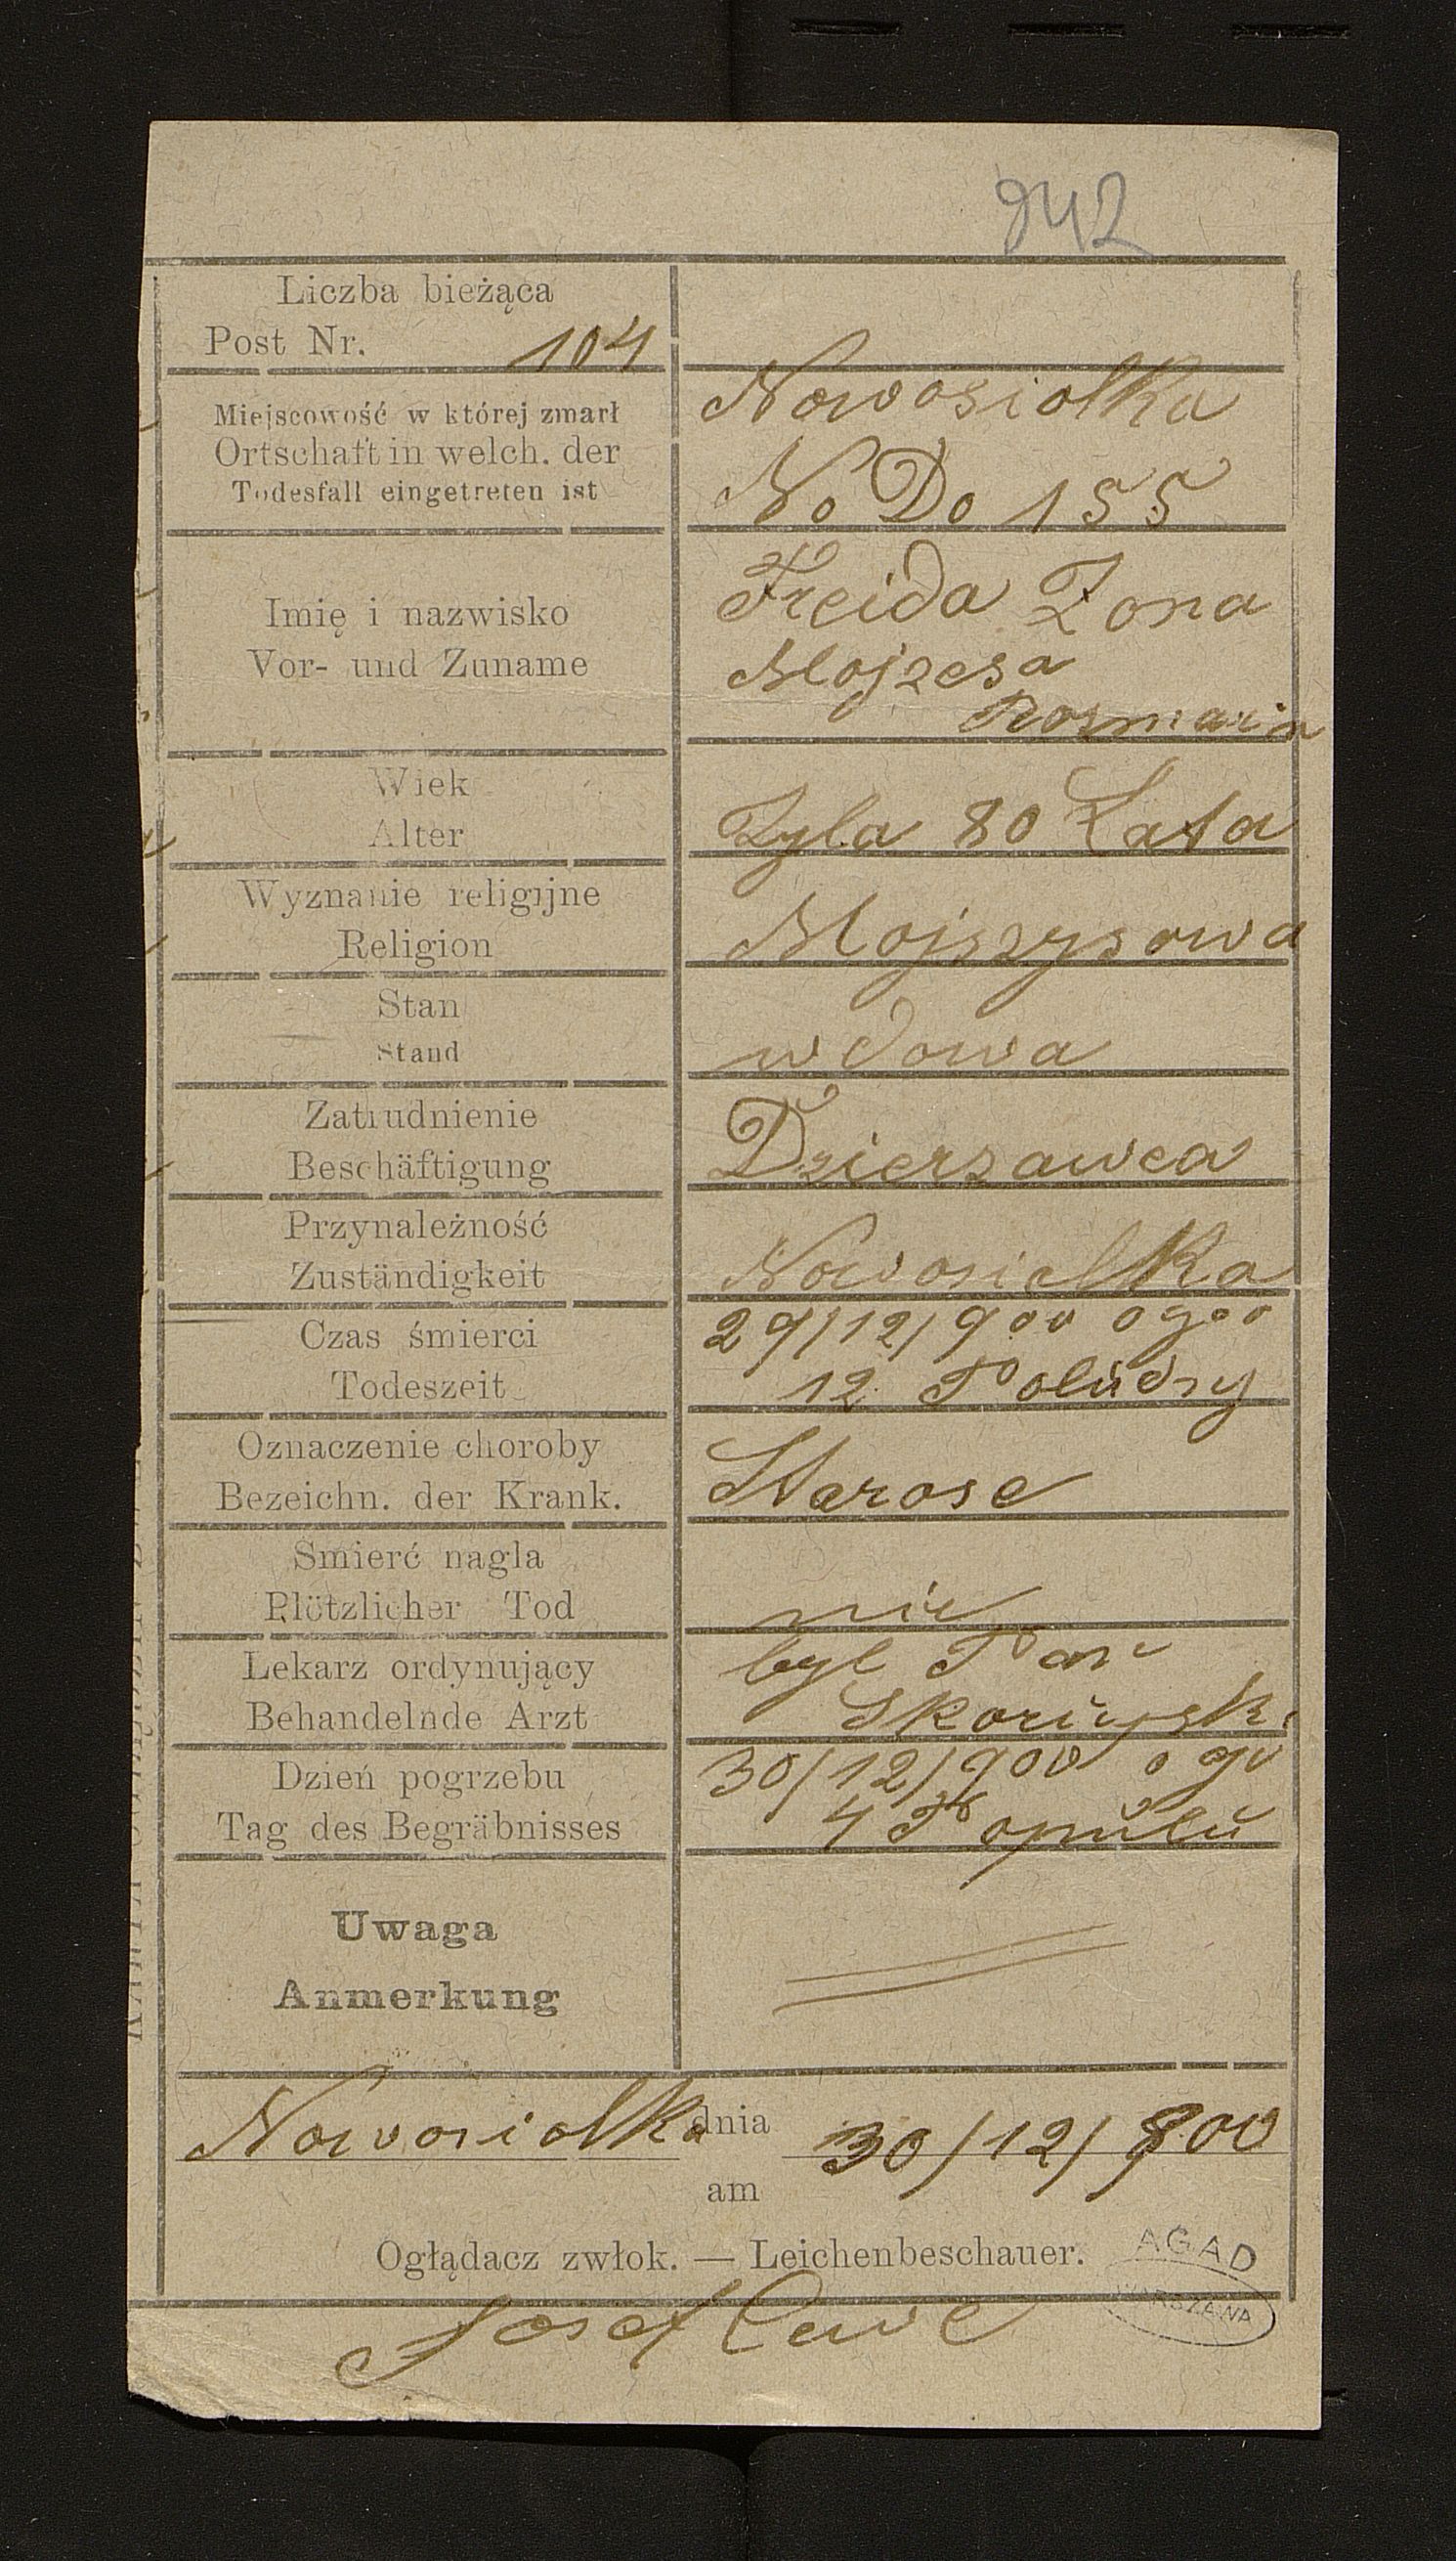 942
Liczba bieżąca
Post Nr. 104
Miejscowość w której zmarł
Ortschaft in welch. der
Todesfall eingetreten ist
Nowosiolka
No Do 155
Imię i nazwisko
Vor- und Zuname
Freida Zona
Mojzesa
Rosmarin
Wiek
Alter
Zyla 80 Lata
Wyznanie religijne
Religion
Mojszysowa
Stan
Stand
wdowa
Zatrudnienie
Beschäftigung
Dzierzawca
Przynależność
Zuständigkeit
Nowosiolka
Czas śmierci
Todeszeit
29/12/900 ogo
12 Poludny
Oznaczenie choroby
Bezeichn. der Krank.
Starosc
Smierć nagla
Plötzlicher Tod
nie
Lekarz ordynujący
Behandelnde Arzt
byl Pan
Dzień pogrzebu
Tag des Begräbnisses
30/12/900 ogo
4 Populu
Uwaga
Anmerkung
Nowosiolka dnia 30/12/900
am
Oglądacz zwłok. — Leichenbeschauer.
AGAD
WARSZAWA
Josef